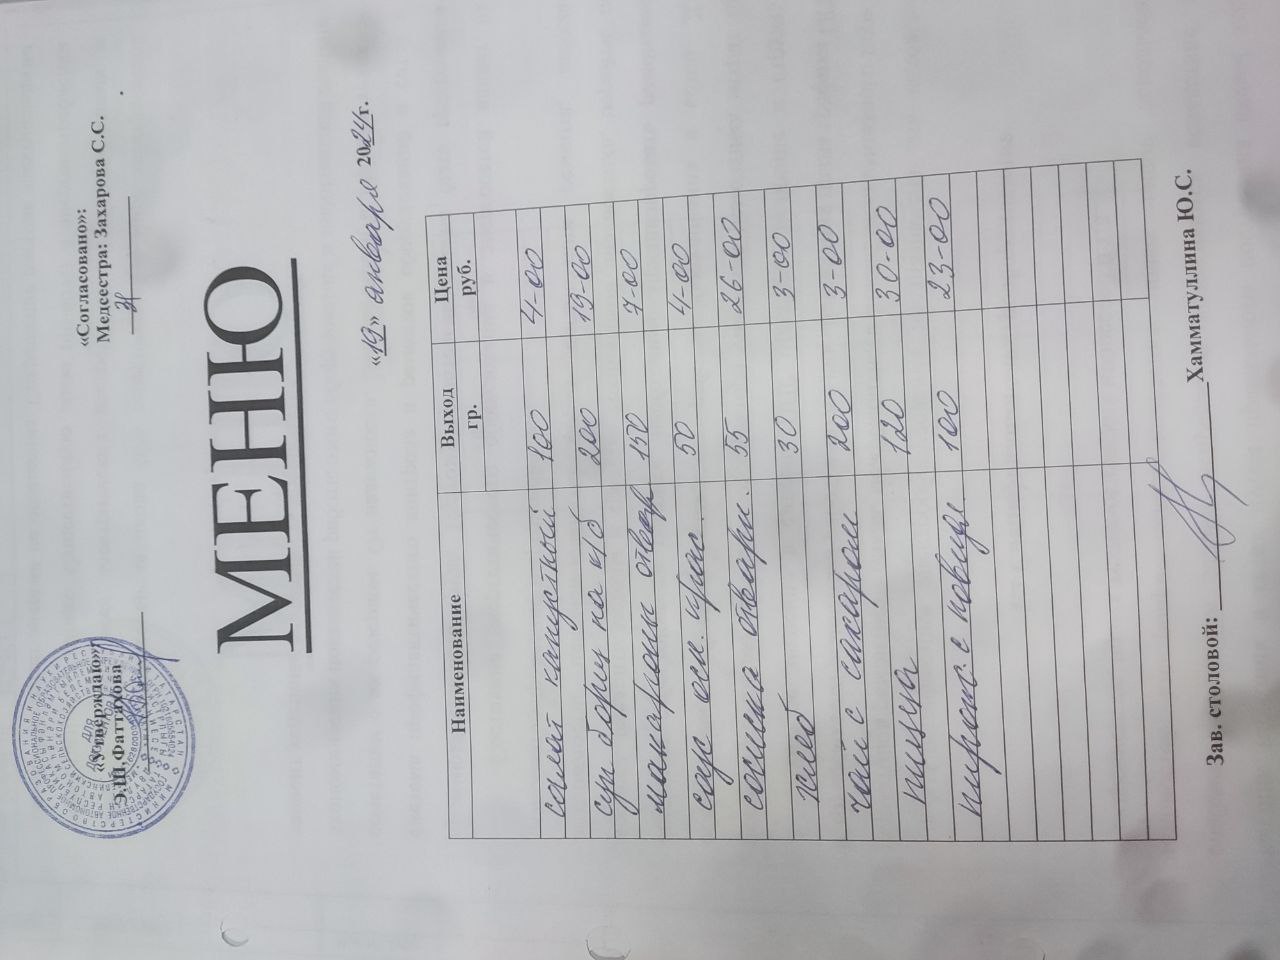 «Утверждаю»:
Э.Ш.Фаттахова
«Согласовано»:
Медсестра: Захарова С.С.
МЕНЮ
«19» января 2024г.
Наименование Выход гр. Цена руб.
салат капустный 100 4-00
суп борщ на к/б 200 19-00
макароны отвар 150 7-00
соус осн. крас. 50 4-00
сосиска отварн. 55 26-00
хлеб 30 3-00
чай с сахаром 200 3-00
пицца 120 30-00
пирож. с повидл. 100 23-00
Зав. столовой: Хамматуллина Ю.С.